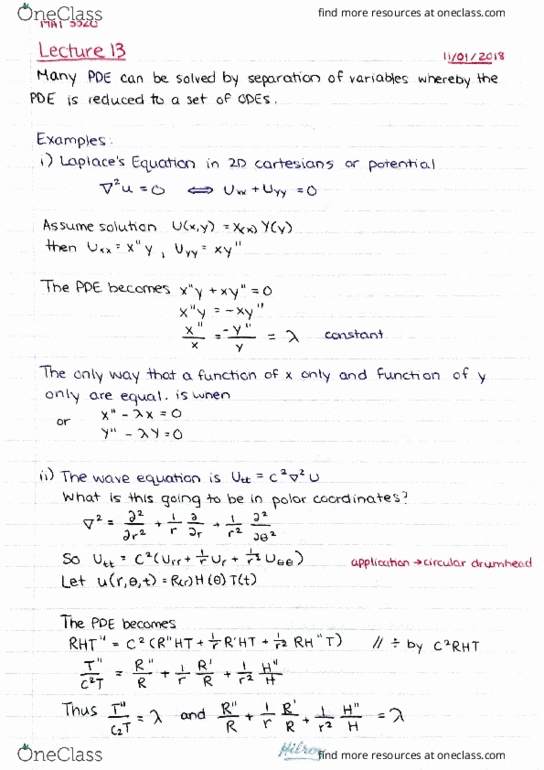 OneClass
find more resources at oneclass.com
Lecture 13
11/01/2018
Many PDE can be solved by separation of variables whereby the
PDE is reduced to a set of ODEs.
Examples:
i) Laplace's Equation in 2D cartesians or potential
∇²u = 0 ⟺ Uxx + Uyy = 0
Assume solution U(x,y) = X(x) Y(y)
then Uxx = X"Y , Uyy = XY"
The PDE becomes X"Y + XY" = 0
X"Y = -XY"
X"/X = -Y"/Y = λ constant
The only way that a function of x only and function of y
only are equal. is when
X" - λX = 0
or
Y" - λY = 0
ii) The wave equation is Utt = C²∇²U
What is this going to be in polar coordinates?
∇² = ∂²/∂r² + 1/r ∂/∂r + 1/r² ∂²/∂θ²
So Utt = C²(Urr + 1/r Ur + 1/r² Uθθ) application → circular drumhead
Let u(r,θ,t) = R(r) H(θ) T(t)
The PDE becomes
RHT" = C²(R"HT + 1/r R'HT + 1/r² RH"T) // ÷ by C²RHT
T"/C²T = R"/R + 1/r R'/R + 1/r² H"/H
Thus T"/C₂T = λ and R"/R + 1/r R'/R + 1/r² H"/H = λ
Hilroy
OneClass
find more resources at oneclass.com